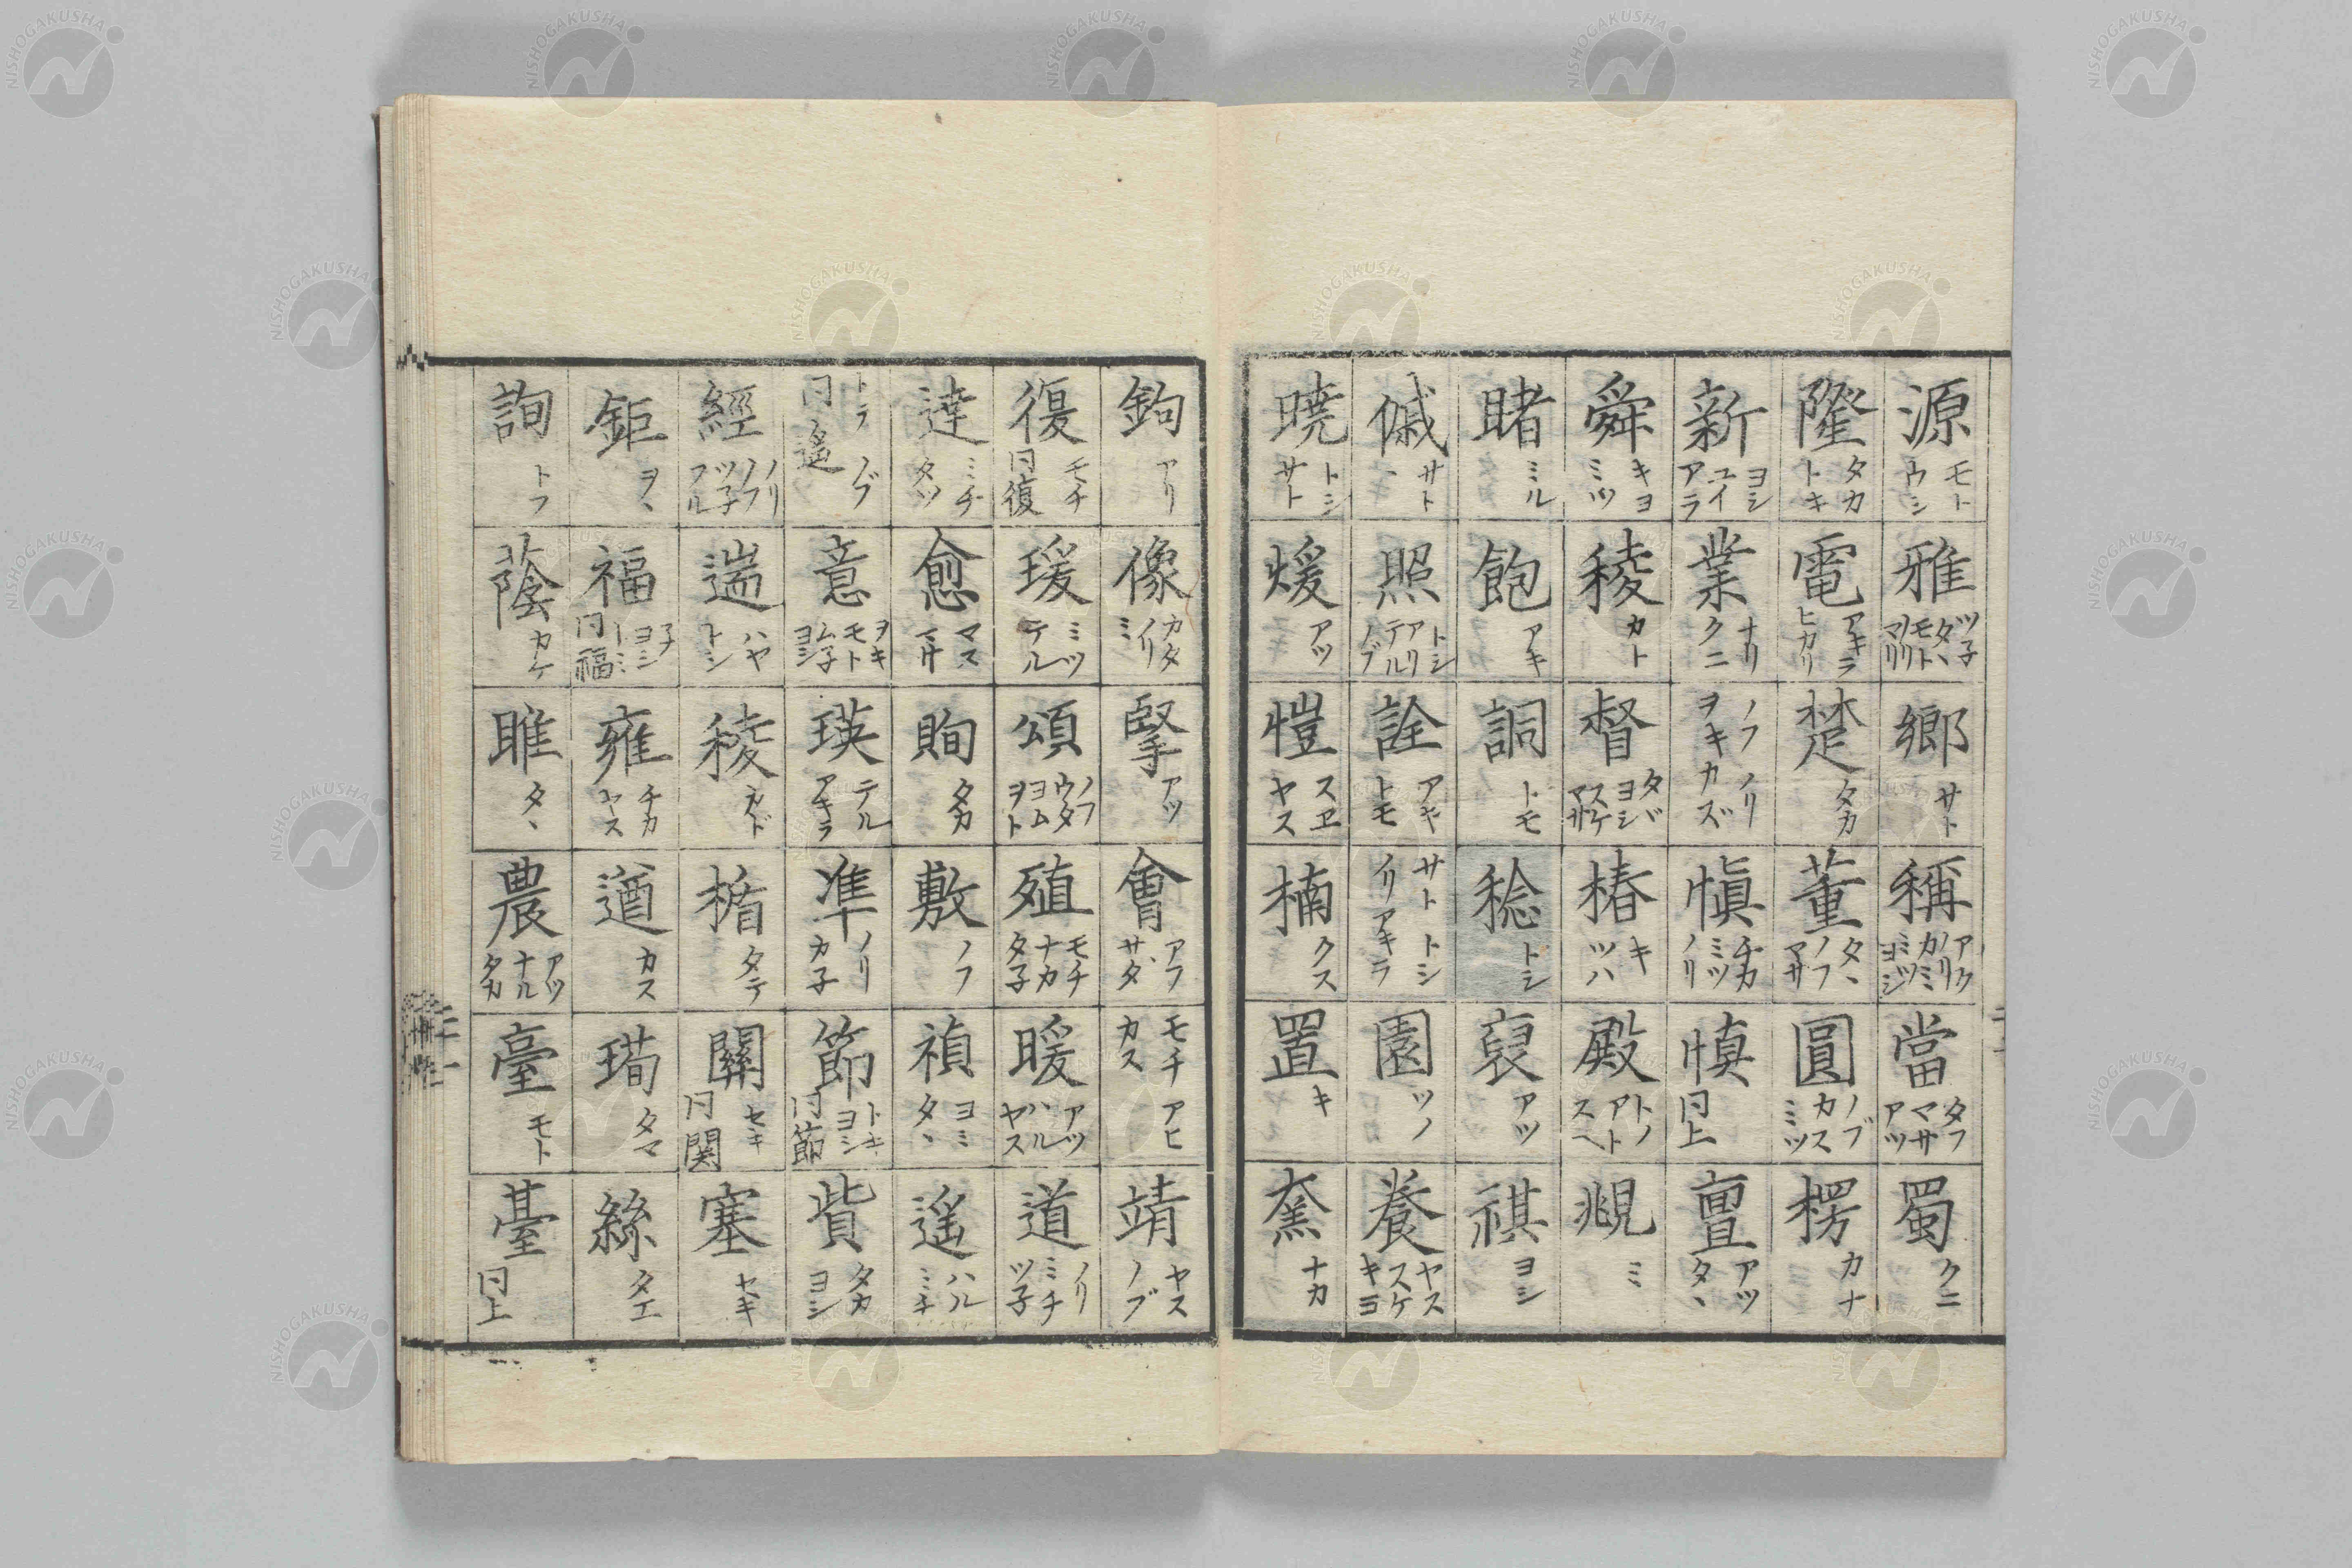 源 モト ウシ
雅 ツ子 タヽ モト ノリ マリ
郷 サト
稱 アク ノリ カミ ミツ ヨシ
當 タフ マサ アツ
蜀 クニ
隆 タカ トキ
電 アキラ ヒカリ
楚 タカ
董 タヽ ノフ マサ
圓 ノブ カス ミツ
楞 カナ
新 ヨシ ユイ アラ
業 ナリ クニ
ノフ ノリ ヲキ カズ
愼 チカ ミツ ノリ
慎 同上
亶 アツ タヽ
舜 キヨ ミツ
稜 カト
督 タヾ ヨシ スケ マサ
椿 キ ツハ
殿 トノ アト スヘ
覜 ミ
睹 ミル
飽 アキ
詞 トモ
稔 トシ
裒 アツ
祺 ヨシ
傶 サト
照 トシ アリ テル ノブ
詮 アキ トモ
サト トシ イリ アキラ
園 ソノ
養 ヤス スケ キヨ
暁 トシ サト
煖 アツ
愷 スヱ ヤス
楠 クス
置 キ
ナカ
鉤 アリ
像 カタ ノリ ミ
掔 アツ
會 アフ サダ
モチ アヒ カス
靖 ヤス ノブ
復 モチ 同復
瑗 ミツ テル
頌 ノフ ウタ ヨム ヲト
殖 モチ ナカ タ子
暖 アツ ハル ヤス
道 ノリ ミチ ツ子
達 ミチ タツ
愈 マス マサ
眴 タカ
敷 ノフ
禎 ヨミ タヽ
遙 ハル ミチ
トヲ ノブ 同遙
意 ヲキ モト ム子 ヨシ
瑛 テル アキラ
準 ノリ カ子
節 トキ ヨシ 同節
貲 タカ ヨシ
經 ノリ ノフ ツ子 フル
遄 ハヤ トシ
稜 カド
楯 タテ
關 セキ 同関
塞 セキ
鉅 ヲヽ
福 子 ヨシ トミ 同福
雍 チカ ヤス
遒 カス
タマ
絲 タエ
詢 トフ
蔭 カケ
雎 タヽ
農 アツ ナル タカ
臺 モト
薹 同上